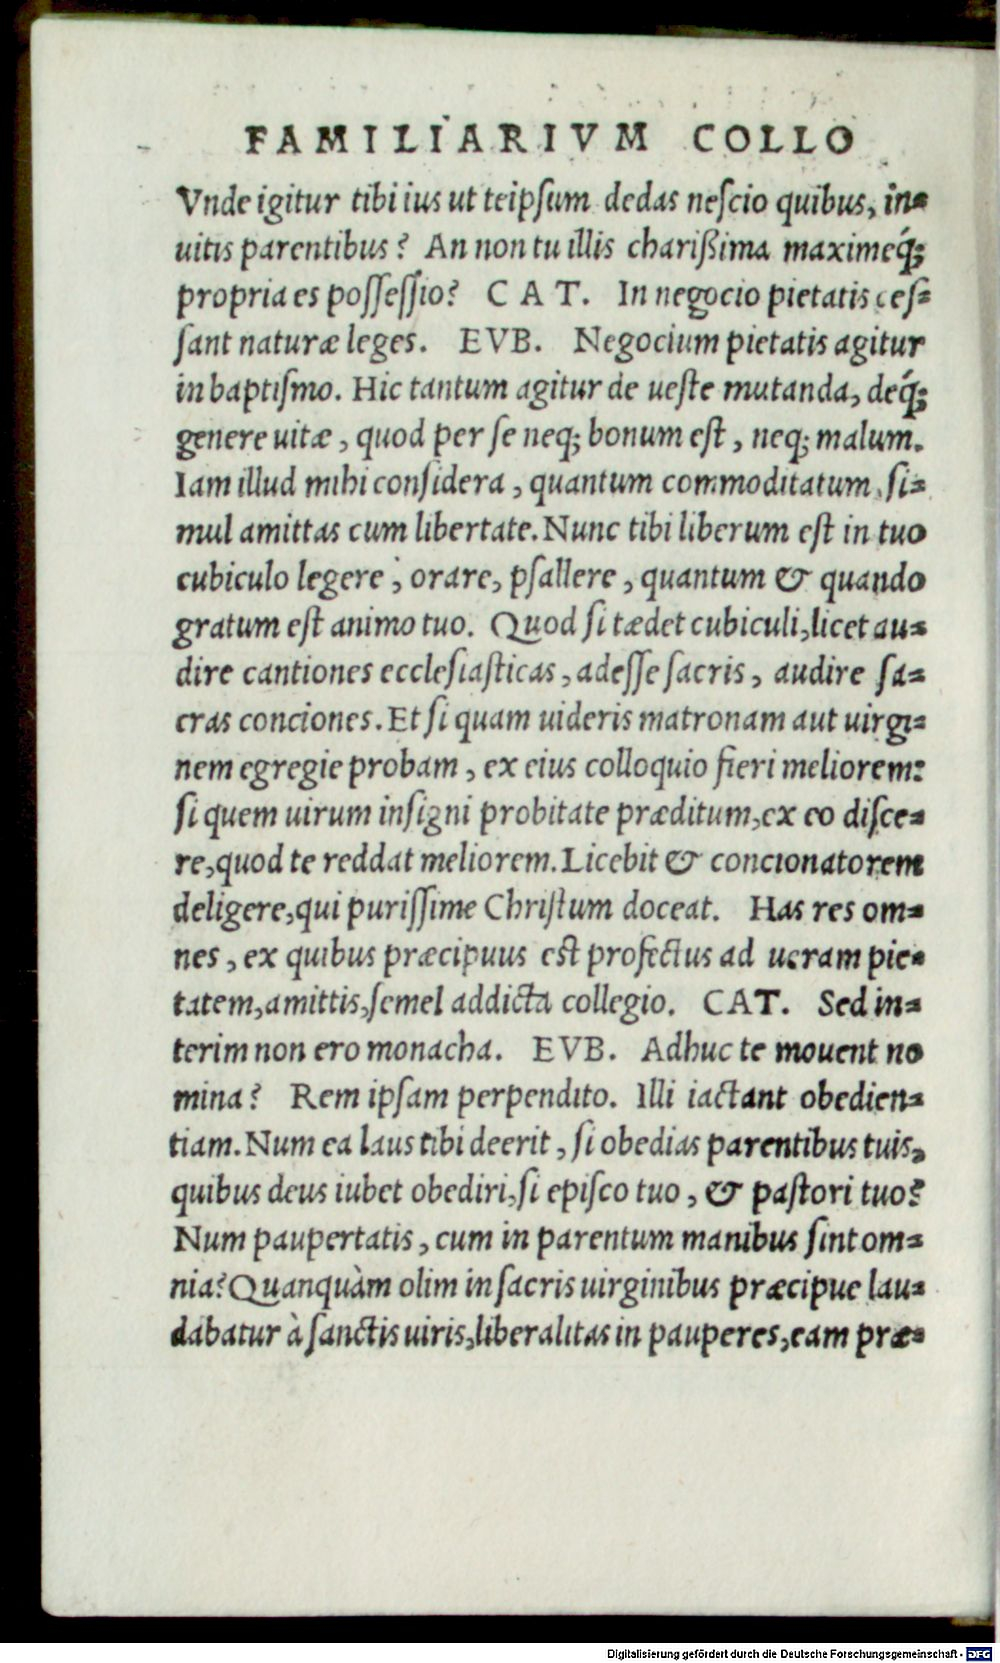 FAMILIARIVM COLLO
Vnde igitur tibi ius ut teipsum dedas nescio quibus, in-
uitis parentibus? An non tu illis charißima maximeq́;
propria es possessio? CAT. In negocio pietatis ces-
sant naturæ leges. EVB. Negocium pietatis agitur
in baptismo. Hic tantum agitur de ueste mutanda, deq́;
genere uitæ, quod per se neq; bonum est, neq; malum.
Iam illud mihi considera, quantum commoditatum, si-
mul amittas cum libertate. Nunc tibi liberum est in tuo
cubiculo legere, orare, psallere, quantum & quando
gratum est animo tuo. Quod si tædet cubiculi, licet au-
dire cantiones ecclesiasticas, adesse sacris, audire sa-
cras conciones. Et si quam uideris matronam aut uirgi-
nem egregie probam, ex eius colloquio fieri meliorem:
si quem uirum insigni probitate præditum, ex eo disce-
re, quod te reddat meliorem. Licebit & concionatorem
deligere, qui purissime Christum doceat. Has res om-
nes, ex quibus præcipuus est profectus ad ueram pie-
tatem, amittis, semel addicta collegio. CAT. Sed in-
terim non ero monacha. EVB. Adhuc te mouent no
mina? Rem ipsam perpendito. Illi iactant obedien-
tiam. Num ea laus tibi deerit, si obedias parentibus tuis,
quibus deus iubet obediri, si episco tuo, & pastori tuo?
Num paupertatis, cum in parentum manibus sint om-
nia? Quanquàm olim in sacris uirginibus præcipue lau-
dabatur à sanctis uiris, liberalitas in pauperes, eam præ-
Digitalisierung gefördert durch die Deutsche Forschungsgemeinschaft - DFG